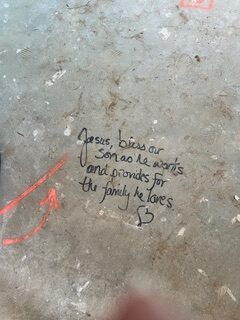 Jesus, bless our
son as he works
and provides for
the family he loves